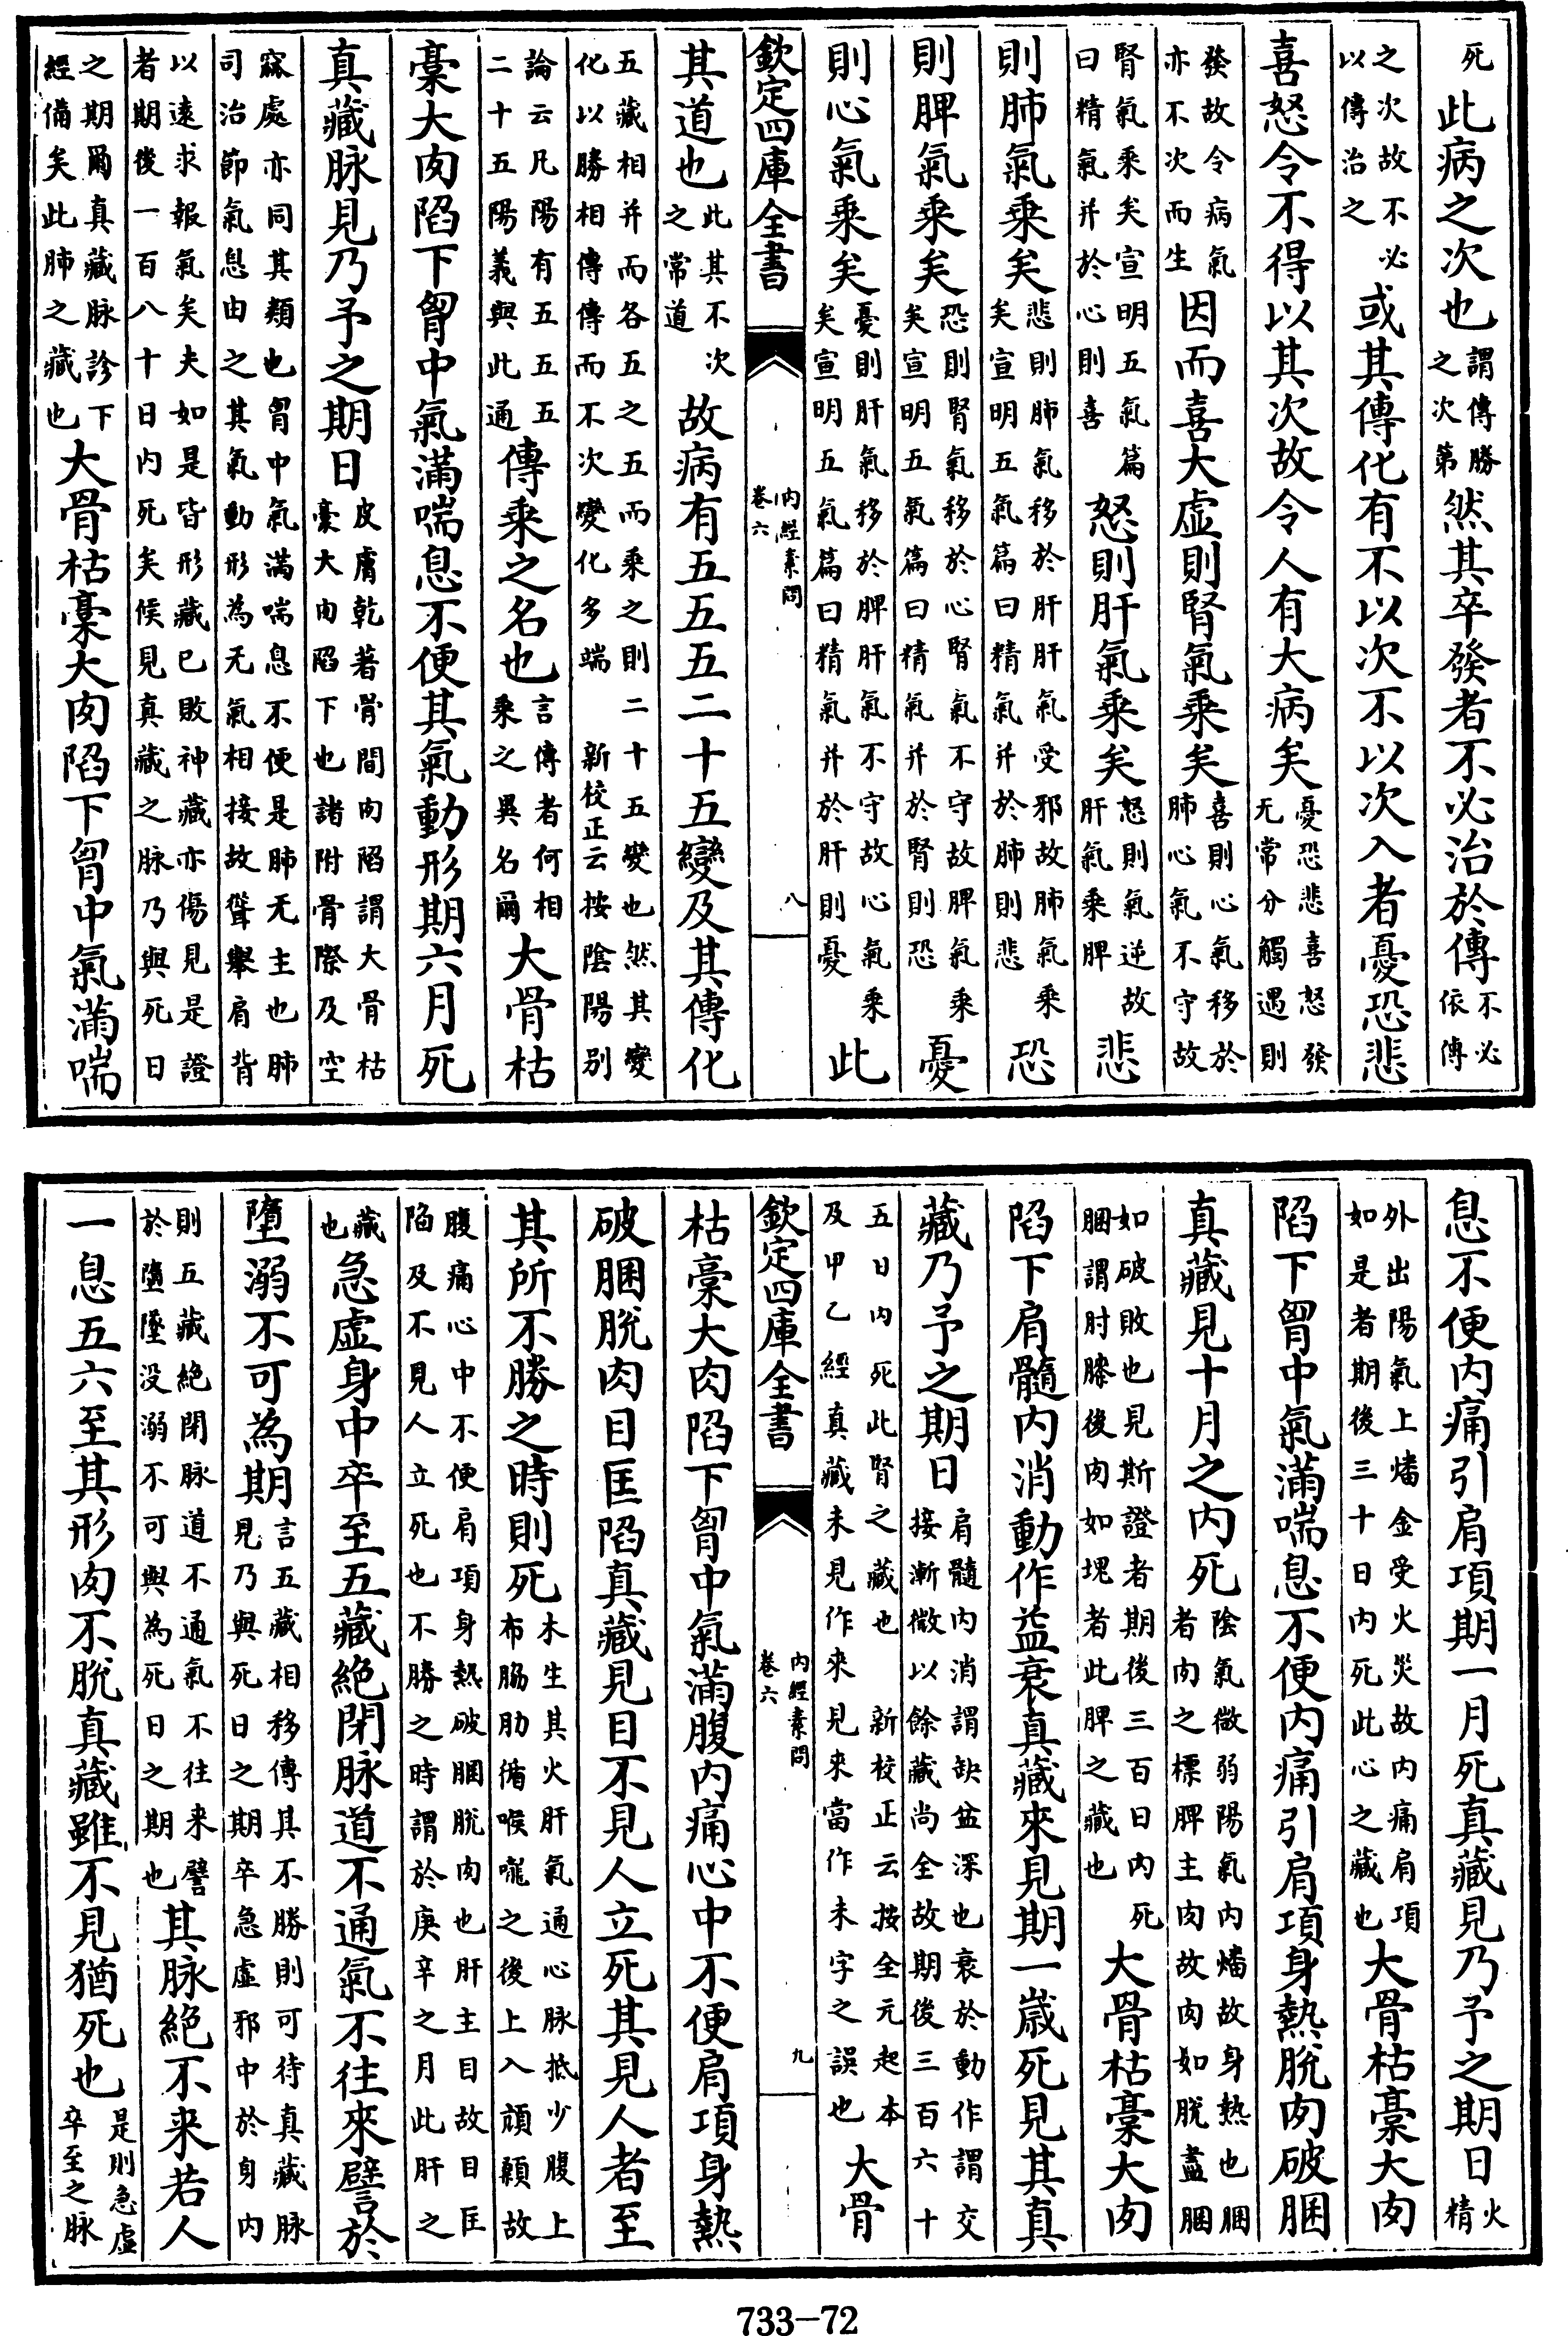 死此病之次也謂傳勝之次第然其卒發者不必治於傳不必依傳
之次故不必以傳治之或其傳化有不以次不以次入者憂恐悲
喜怒令不得以其次故令人有大病矣憂恐悲喜怒發无常分觸遇則
發故令病氣亦不次而生因而喜大虛則腎氣乘矣喜則心氣移於肺心氣不守故
腎氣乘矣宣明五氣篇曰精氣并於心則喜怒則肝氣乘矣怒則氣逆故肝氣乘脾悲
則肺氣乘矣悲則肺氣移於肝肝氣受邪故肺氣乘矣宣明五氣篇曰精氣并於肺則悲恐
則脾氣乘矣恐則腎氣移於心腎氣不守故脾氣乘矣宣明五氣篇曰精氣并於腎則恐憂
則心氣乘矣憂則肝氣移於脾肝氣不守故心氣乘矣宣明五氣篇曰精氣并於肝則憂此
欽定四庫全書 內經素問卷六 八
其道也此其不次之常道故病有五五五二十五變及其傳化
五藏相并而各五之五而乘之則二十五變也然其變化以勝相傳傳而不次變化多端 新校正云按陰陽别
論云凡陽有五五五二十五陽義與此通傳乘之名也言傳者何相乘之異名爾大骨枯
槀大肉陷下胷中氣滿喘息不便其氣動形期六月死
真藏脉見乃予之期日皮膚乾著骨間肉陷謂大骨枯槀大肉陷下也諸附骨際及空
窳處亦同其類也胷中氣滿喘息不便是肺无主也肺司治節氣息由之其氣動形為无氣相接故聳舉肩背
以遠求報氣矣夫如是皆形藏已敗神藏亦傷見是證者期後一百八十日內死矣候見真藏之脉乃與死日
之期爾真藏脉診下經備矣此肺之藏也大骨枯槀大肉陷下胷中氣滿喘
息不便內痛引肩項期一月死真藏見乃予之期日火精
外出陽氣上燔金受火災故內痛肩項如是者期後三十日內死此心之藏也大骨枯槀大肉
陷下胷中氣滿喘息不便內痛引肩項身熱脫肉破䐃
真藏見十月之內死陰氣微弱陽氣內燔故身熱也䐃者肉之標脾主肉故肉如脫盡䐃
如破敗也見斯證者期後三百日內死䐃謂肘膝後肉如塊者此脾之藏也大骨枯槀大肉
陷下肩髓內消動作益衰真藏來見期一歲死見其真
藏乃予之期日肩髓內消謂缺盆深也衰於動作謂交接漸微以餘藏尚全故期後三百六十
五日內死此腎之藏也 新校正云按全元起本及甲乙經真藏未見作來見來當作未字之誤也大骨
欽定四庫全書 內經素問卷六 九
枯槀大肉陷下胷中氣滿腹內痛心中不便肩項身熱
破䐃脫肉目匡陷真藏見目不見人立死其見人者至
其所不勝之時則死木生其火肝氣通心脉抵少腹上布脇肋循喉嚨之後上入頏顙故
腹痛心中不便肩項身熱破䐃脫肉也肝主目故目匡陷及不見人立死也不勝之時謂於庚辛之月此肝之
藏也急虛身中卒至五藏絕閉脉道不通氣不往來譬於
墮溺不可為期言五藏相移傳其不勝則可待真藏脉見乃與死日之期卒急虛邪中於身內
則五藏絕閉脉道不通氣不往來譬於墮墜沒溺不可與為死日之期也其脉絕不来若人
一息五六至其形肉不脫真藏雖不見猶死也是則急虛卒至之脉
733-72